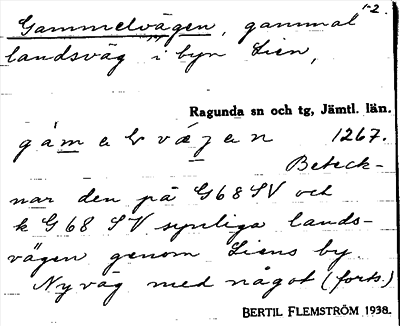 1-2.
Gammelvägen, gammal
landsväg i byn Lien,
Ragunda sn och tg, Jämtl. län.
1267.
Beteck-
nar den på G68SV och
k G68 SV synliga lands-
vägen genom Liens by.
Ny väg med något (forts.)
BERTIL FLEMSTRÖM 1938.